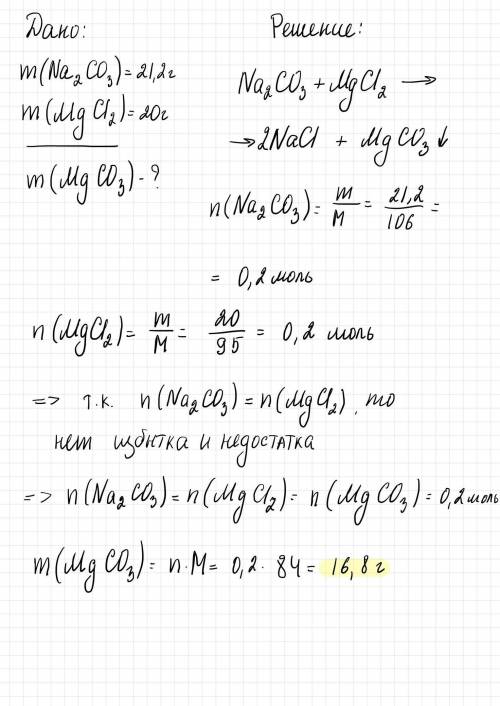 Дано:
m(Na₂CO₃)=21,2г
m(MgCl₂)=20г
m(MgCO₃)-?
Решение:
Na₂CO₃+MgCl₂ →
→2NaCl + MgCO₃↓
n(Na₂CO₃)= m/M = 21,2/106 =
= 0,2 моль
n(MgCl₂)= m/M = 20/95 = 0,2 моль
=> т.к. n(Na₂CO₃)=n(MgCl₂), то
нет избытка и недостатка
=> n(Na₂CO₃)=n(MgCl₂)= n(MgCO₃)=0,2моль
m(MgCO₃)= n·M= 0,2· 84= 16,8г